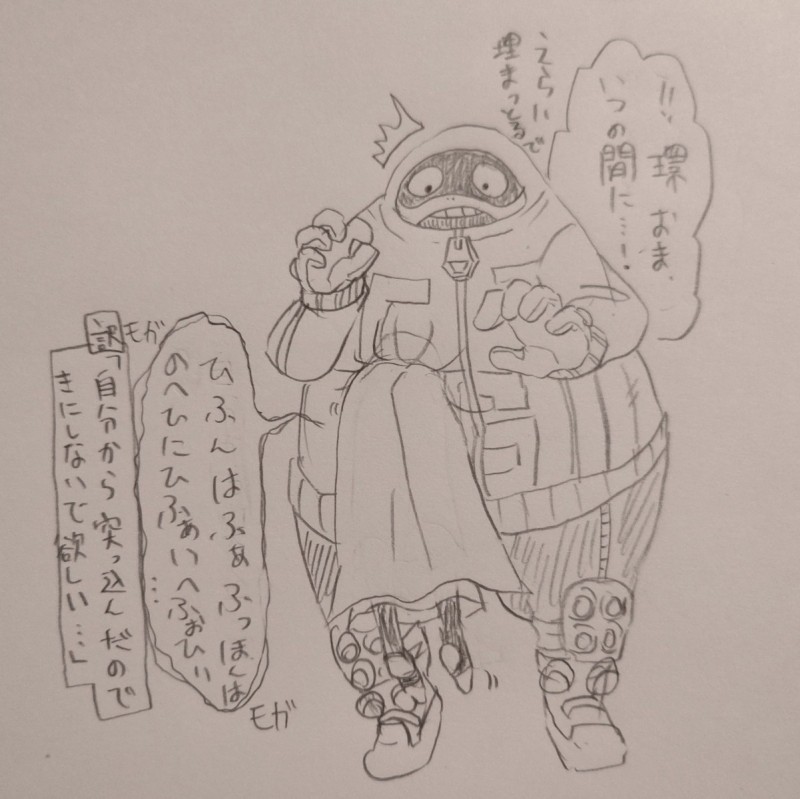 !!、環 おま、
いつの間に…!
えらいで
埋まっとるで
モガ
ひふんはふぁふっほんは
のへひにひふぁいへふぉひい
…
モガ
訳
「自分から突っ込んだので
きにしないで欲しい…」